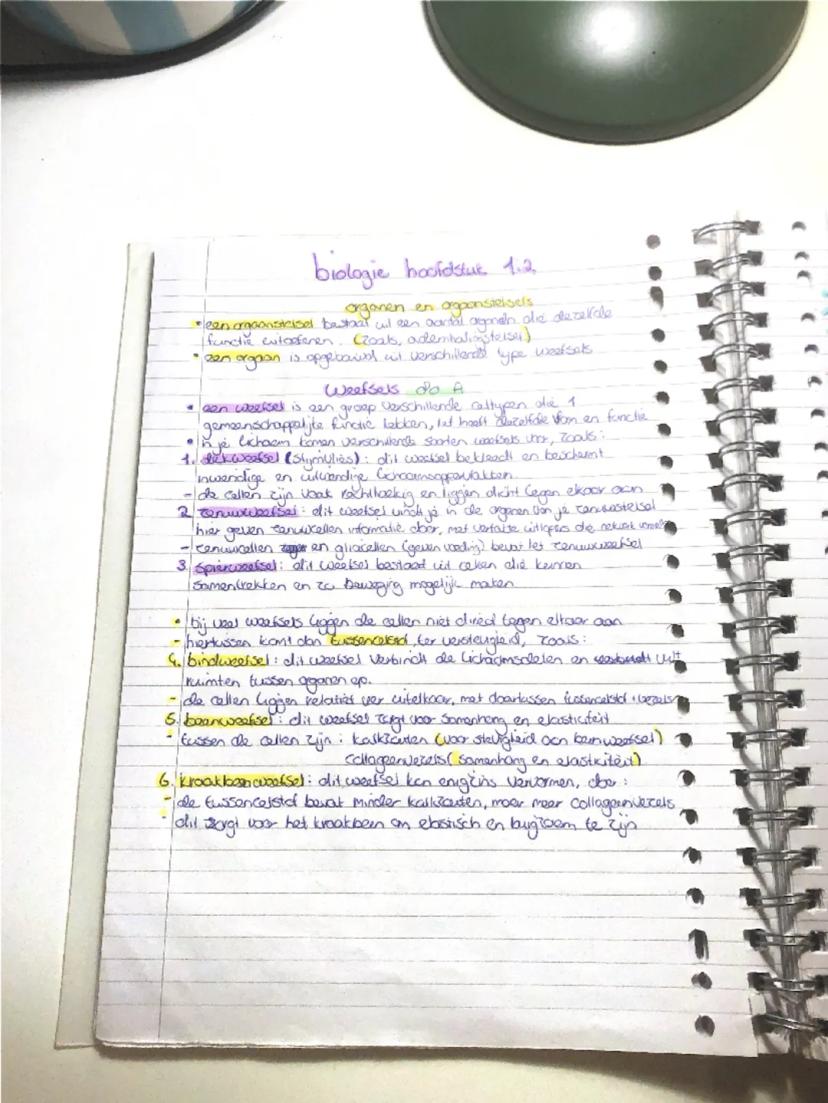 biologie hoofdstuk 1.2
organen en orgaanstelsels
• een orgaanstelsel bestaat uit een aantal organen die dezelfde
functie uitoefenen. (zoals, ademhalingstelsel)
• een orgaan is opgebouwd uit verschillende type weefsels
Weefsels
• een weefsel is een groep verschillende celtypen die 1
gemeenschappelijke functie hebben, het heeft dezelfde vorm en functie
• in je lichaam komen verschillende soorten weefsels voor, zoals:
1. dekweefsel : dit weefsel bekleedt en beschermt
inwendige en uitwendige lichaamsoppervlakken
- de cellen zijn vaak rechthoekig en liggen dicht tegen elkaar aan
2. zenuwweefsel : dit weefsel vindt je in de organen van je zenuwstelsel
hier geven zenuwcellen informatie door, met vertakte uitlopers die netwerk
- zenuwcellen en gliacellen (geven voeding) bevat het zenuwweefsel
3. spierweefsel : dit weefsel bestaat uit cellen die kunnen
samentrekken en zo beweging mogelijk maken
• bij veel weefsels liggen de cellen niet direct tegen elkaar aan
- hiertussen komt dan tussencelstof, ter versteviging, zoals:
4. bindweefsel : dit weefsel verbindt de lichaamsdelen en vult
ruimten tussen organen op.
- de cellen liggen relatief ver uitelkaar, met daartussen tussencelstof + vezels
5. beenweefsel : dit weefsel zorgt voor samenhang en elasticiteit
- tussen de cellen zijn : kalkzouten (voor stevigheid aan beenweefsel)
collageenvezels (samenhang en elasticiteit)
6. kraakbeenweefsel : dit weefsel kan enigzins vervormen, door :
- de tussencelstof bevat minder kalkzouten, maar meer collageenvezels
- dit zorgt voor het kraakbeen om elastisch en buigzaam te zijn